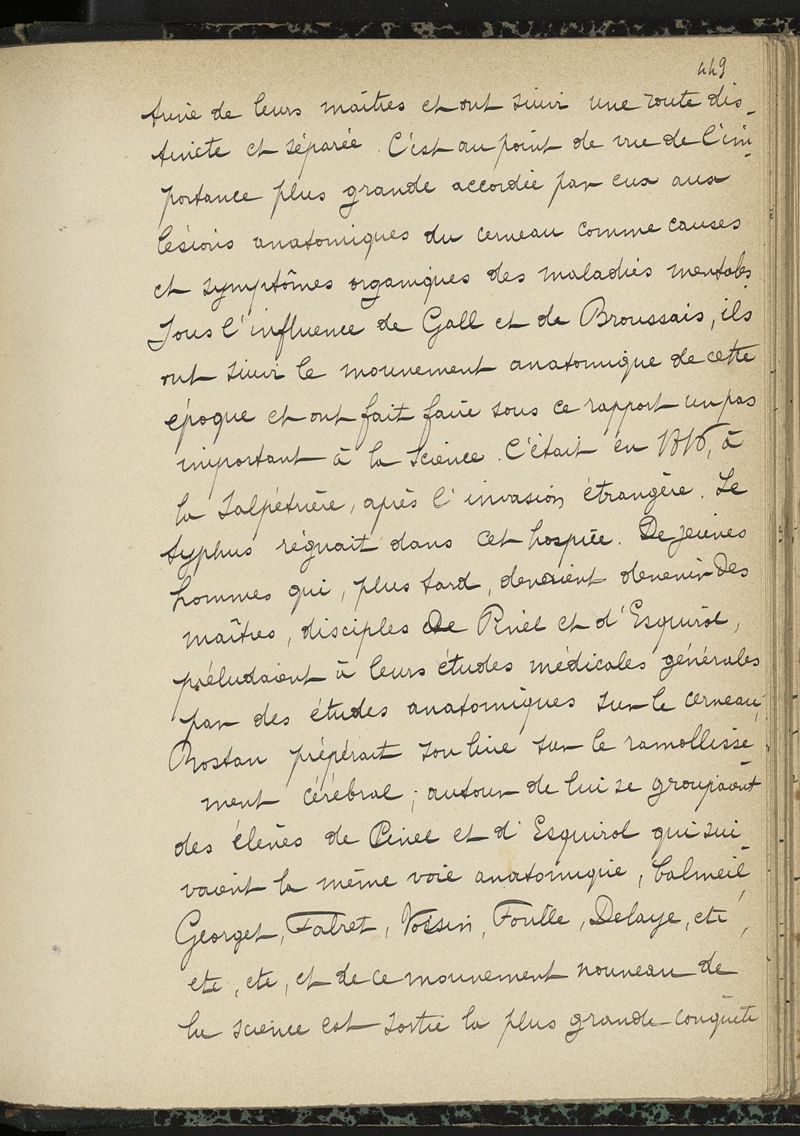 449
trine de leurs maîtres et ont suivi une route dis-
tincte et séparée. C'est au point de vue de l'im-
portance plus grande accordée par eux aux
lésions anatomiques du cerveau comme causes
et symptômes organiques des maladies mentales.
Sous l'influence de Gall et de Broussais, ils
ont suivi le mouvement anatomique de cette
époque et ont fait faire sous ce rapport un pas
important à la science. C'était en à
la Salpétrière, après l'invasion étrangère. Le
typhus régnait dans cet hospice. De jeunes
hommes qui, plus tard, devaient devenir des
maîtres, disciples de Pinel et d'Esquirol,
préludaient à leurs études médicales générales
par des études anatomiques sur le cerveau;
Rostan prépérait son livre sur le ramollisse-
ment cérébral; autour de lui se groupaient
des élèves de Pinel et d'Esquirol qui sui-
vaient la même voie anatomique, Calmeil,
Georget, Falret, Voisin, Foville, Delaye, etc,
etc, etc, et de ce mouvement nouveau de
la science est sortie la plus grande conquête